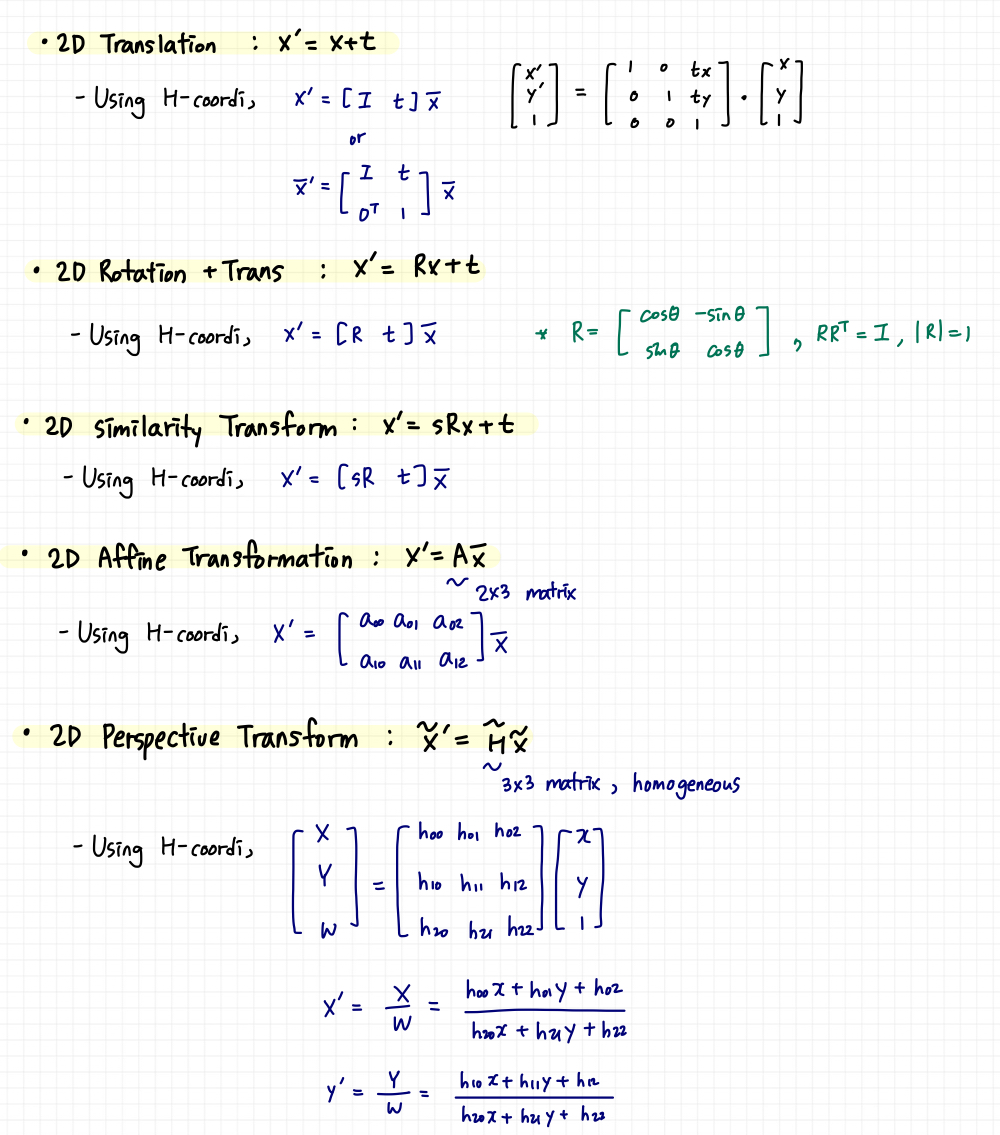 • 2D Translation : x' = x+t
- Using H-coordi, x' = [I t] x̅
[x' y' 1] = [1 0 tx; 0 1 ty; 0 0 1] · [x y 1]
or
x̅' = [I t; 0ᵀ 1] x̅
• 2D Rotation + Trans : x' = Rx+t
- Using H-coordi, x' = [R t] x̅
* R = [cosθ -sinθ; sinθ cosθ], RRᵀ = I, |R|=1
• 2D similarity Transform : x' = sRx+t
- Using H-coordi, x' = [sR t] x̅
• 2D Affine Transformation : x' = Ax̅
~ 2x3 matrix
- Using H-coordi, x' = [a₀₀ a₀₁ a₀₂; a₁₀ a₁₁ a₁₂] x̅
• 2D Perspective Transform : x̃' = H̃x̃
~ 3x3 matrix, homogeneous
- Using H-coordi, [X Y W] = [h₀₀ h₀₁ h₀₂; h₁₀ h₁₁ h₁₂; h₂₀ h₂₁ h₂₂] [x y 1]
x' = X/W = (h₀₀x + h₀₁y + h₀₂)/(h₂₀x + h₂₁y + h₂₂)
y' = Y/W = (h₁₀x + h₁₁y + h₁₂)/(h₂₀x + h₂₁y + h₂₃)